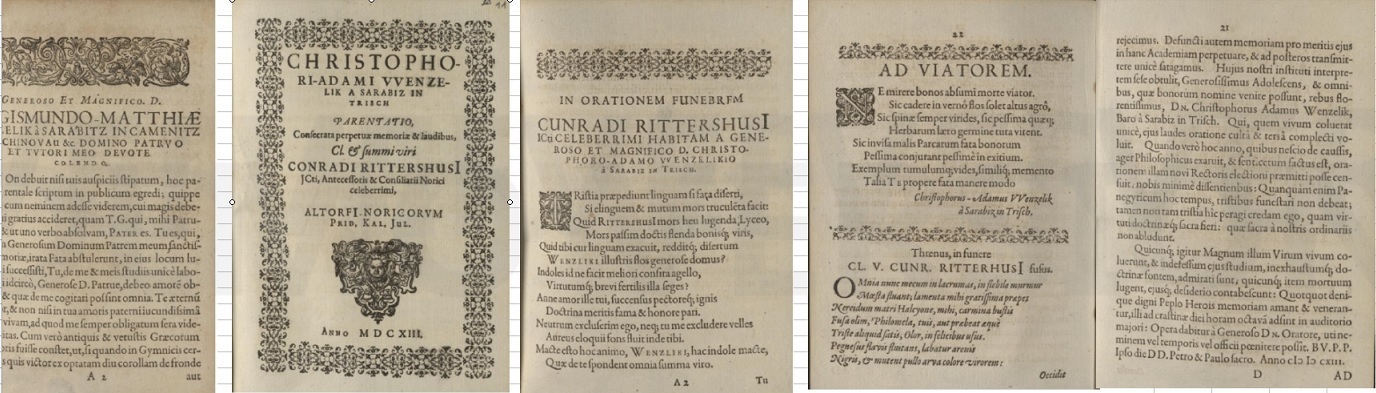 GENEROSO ET MAGNIFICO. D.
GISMUNDO-MATTHIÆ
ELIK à SARABITZ IN CAMENITZ
CHINOVAU &c DOMINO PATRVO
ET TVTORI MEO DEVOTE
COLENDO.
On debuit nisi tuis auspiciis stipatum, hoc pa-
rentale scriptum in publicum egredi; quippe
cum neminem adesse viderem, cui magis debe-
gratius accideret, quam T. G. qui, mihi Patru-
& ut uno verbo absolvam, PATER es. Tu es, qui,
Generosum Dominum Patrem meum sanctis-
irata Fata abstulerunt, in eius locum
successisti, Tu, de me & meis studiis unicè labo-
idcircò, Generose D. Patrue, debeo amorè ob-
& quæ de me cogitari possint omnia. Te æternū
& non nisi in tua amoris paterni iucundissimâ
vivam, ad quod me semper obligatum sera vide-
Cum verò antiquis & vetustis Græcorum
fuisse constet, ut, si quando in Gymnicis cer-
quis victor exoptatam diu corollam de fronde
A 2
aut
CHRISTOPHO-
RI-ADAMI VVENZE-
LIK A SARABIZ IN
TRISCH
PARENTATIO,
Consecrata perpetuæ memoriæ & laudibus,
Cl. & summi viri
CONRADI RITTERSHUSI
JCti, Antecessoris & Consiliarii Norici
celeberrimi,
ALTORFI-NORICORVM
PRID. KAL. JUL.
ANNO MDCXIII.
IN ORATIONEM FUNEBREM
CUNRADI RITTERSHUSI
ICti CELEBERRIMI HABITAM A GENE-
ROSO ET MAGNIFICO D. CHRISTO-
PHORO-ADAMO VVENZELIKIO
à SARABIZ IN TRISCH.
TRistia præpediunt linguam si fata diserti,
Si elinguem & mutum mors truculēta facit:
Quid RITTERSHUSI mors heu lugenda, Lyceo,
Mors passim doctis flenda bonisq́; viris,
Quid tibi cur linguam exacuit, redditq́; disertum
WENZELIKI illustris flos generose domus?
Indoles id ne facit meliori consita agello,
Virtutumq́; brevi fertilis illa seges?
Anne amor ille tui, succensus pectoreq́; ignis
Doctrina meritis fama & honore pari.
Neutrum excluserim ego, neq; tu me excludere velles
Aureus eloquii fons fluit inde tibi.
Macte esto hoc animo, WENZLIKI, hac indole macte,
Quæ de te spondent omnia summa viro.
A 2
Tu
22
AD VIATOREM.
NE mirere bonos absumi morte viator.
Sic cadere in vernô flos solet altus agrô,
Sic spinæ semper virides, sic pessima quæq́;
Herbarum læto germine tuta vitent.
Sic invisa malis Parcarum fata bonorum
Pessima conjurant pessimè in exitium.
Exemplum tumulumq́; vides, similiq́; memento
Talia Te propere fata manere modo
Christophorus-Adamus VVenzelik
à Sarabiz in Trisch.
Threnus, in funere
CL. V. CUNR. RITTERHUSI fusus.
OMnia nunc mecum in lacrumas, in flebile murmur
Mœsta fluant; lamenta mihi gratissima præpes
Nereidum matri Halcyone, mihi, carmina bustis
Fusa elim, Philomela, tuis, aut præbeat æquè
Triste aliquid satis, Olor, in flebilibus usus.
Pegnesus flavis stentans, labatur arenis
Nigris, & mutent pulli arva colore virorem:
Occidit
21
rejecimus. Defuncti autem memoriam pro meritis ejus
in hanc Academiam perpetuare, & ad posteros transmit-
tere unicè satagamus. Hujus nostri instituti interpre-
tem sese obtulit, Generosissimus Adolescens, & omni-
bus, quæ bonorum nomine venire possunt, rebus flo-
rentissimus, DN. Christophorus Adamus Wenzelik,
Baro à Sarabiz in Trisch. Qui, quem vivum coluerat
unicè, ejus laudes oratione cultâ & tersâ complecti vo-
luit. Quando verò hoc anno, quibus nescio de caussis,
ager Philosophicus exaruit, & sentcetum factus est, ora-
tionem illam novi Rectoris electioni præmitti posse cen-
suit, nobis minimè dissentientibus: Quanquam enim Pa-
negyricum hoc tempus, tristibus funestari non debeat;
tamen non tam tristia hic peragi credam ego, quam vir-
tuti doctrinæq́; sacra fieri: quæ sacra à nostris ordinariis
non abludunt.
Quicunq́; igitur Magnum illum Virum vivum co-
luerunt, & indefessum ejus studium, inexhaustumq́; do-
ctrinæ fontem, admirati sunt, quicunq́; item mortuum
lugent, ejusq́; desiderio contabescunt: Quotquot deni-
que digni Peplo Herois memoriam amant & veneran-
tur, illi ad crastinæ diei horam octavâ adsint in auditorio
majori: Opera dabitur à Generoso Dn. Oratore, uti ne-
minem vel temporis vel officii pœnitere possit. B V. P. P.
Ipso die DD. Petro & Paulo sacro. Anno cIɔ Iɔ cxiii.
D
AD